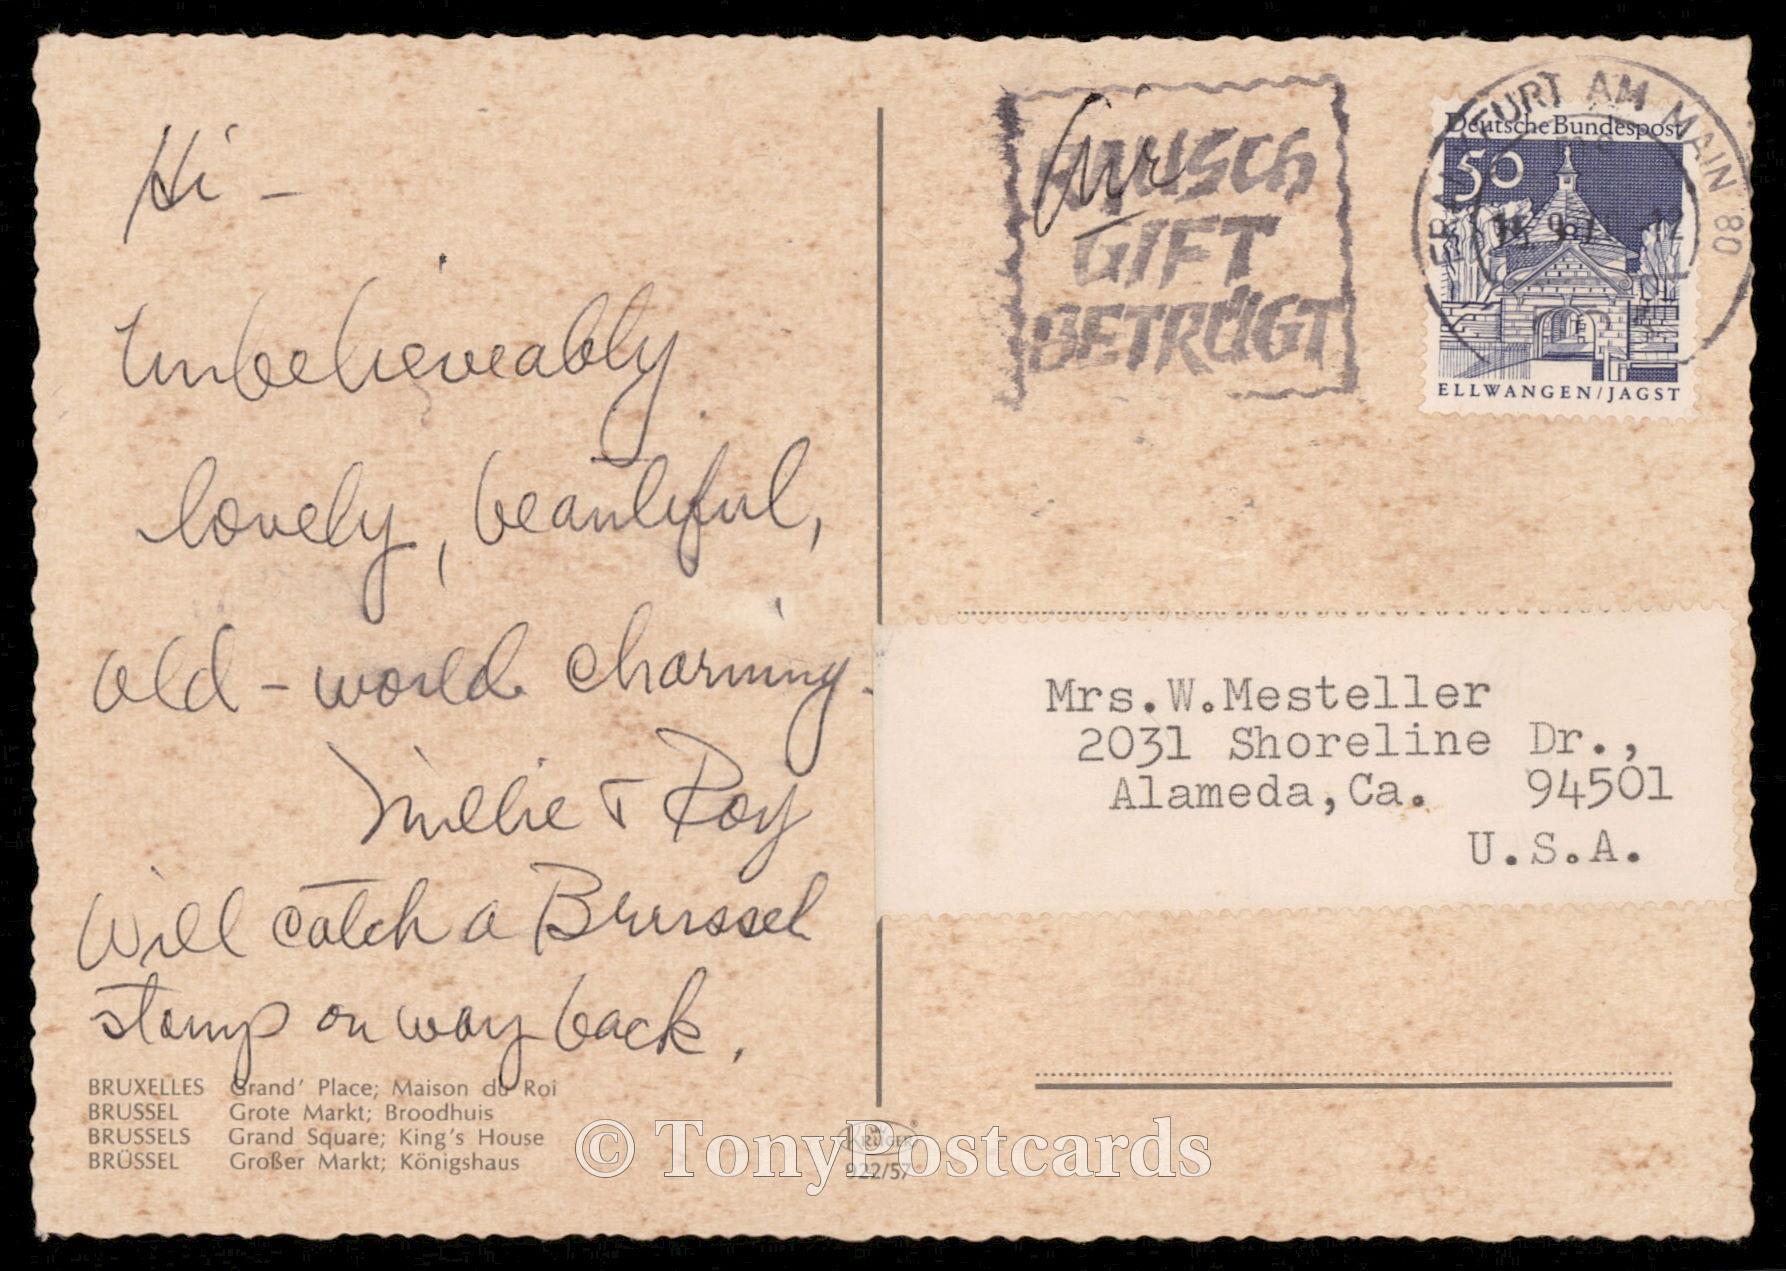 Hi -
Unbelieveably
lovely, beautiful,
old-world charming.
Millie + Roy
Will catch a Brussel
stamp on way back.
BRUXELLES Grand' Place; Maison du Roi
BRUSSEL Grote Markt; Broodhuis
BRUSSELS Grand Square; King's House
BRÜSSEL Großer Markt; Königshaus
Air
RAUSCH
GIFT
BETRÜGT
FRANKFURT AM MAIN 80
Deutsche Bundespost
50
ELLWANGEN/JAGST
Mrs.W.Mesteller
2031 Shoreline Dr.,
Alameda,Ca. 94501
U.S.A.
KRÜGER
922/57
© TonyPostcards